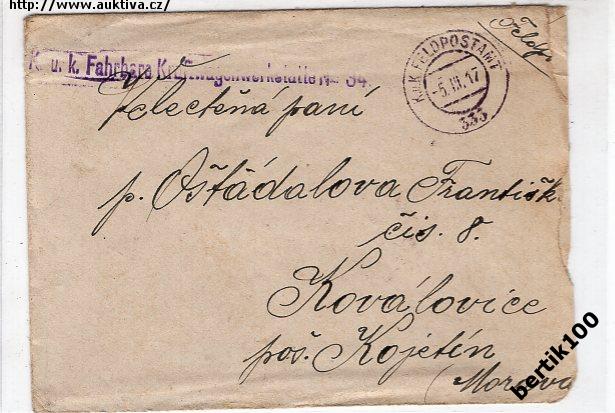 http://www.auktiva.cz/
Feldp.
K. u. k. Fahrbare Kraftwagenwerkstätte No 34
K.u.K. FELDPOSTAMT
-5.III.17
333
Velectěná paní
p. Ošťádalova Františk
čís. 8.
Koválovice
poš. Kojetín
(Morava
bertik100